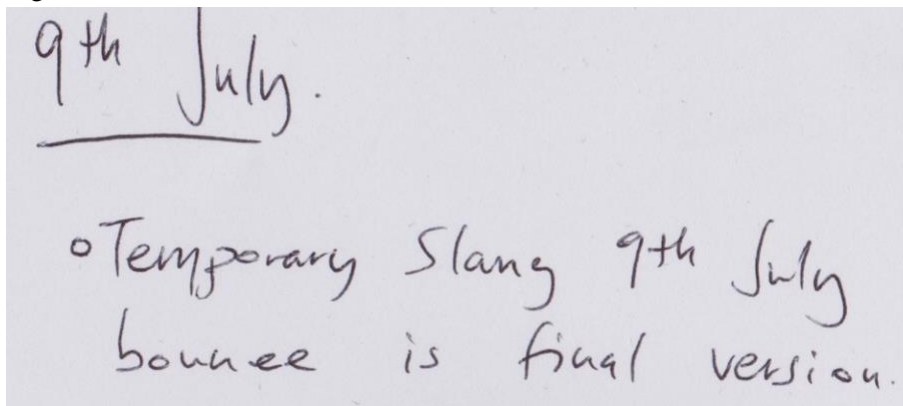 9th July.
Temporary Slang 9th July
bounce is final version.